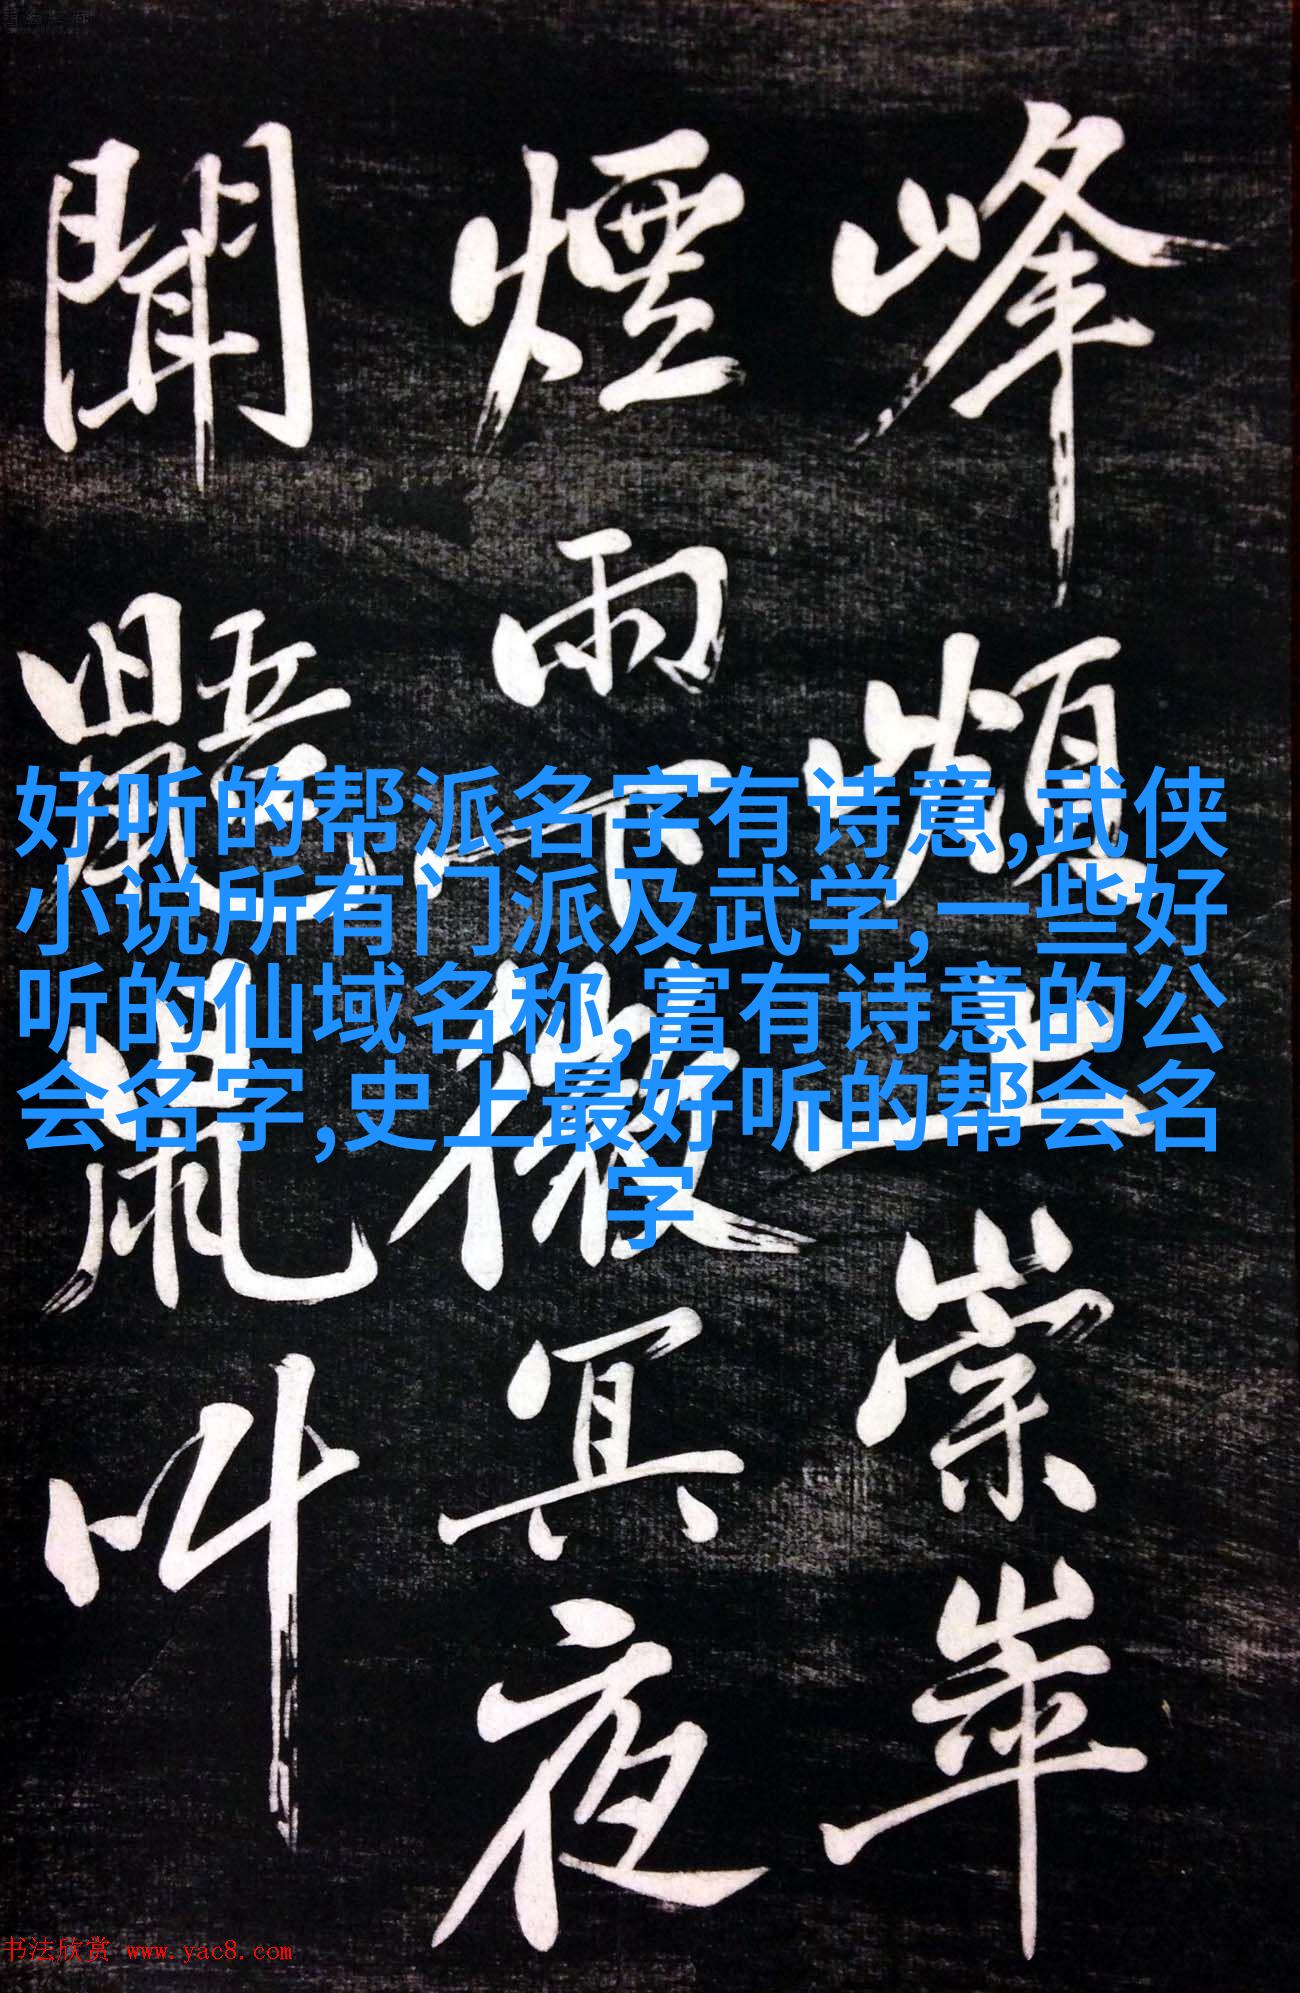 峰嵿上崇崒
煙雨下微冥夜
聞鼯鼠叫
好听的帮派名字有诗意,武侠
小说所有门派及武学,一些好
听的仙域名称,富有诗意的公
会名字,史上最好听的帮会名
字
书法欣赏 www.yac8.com